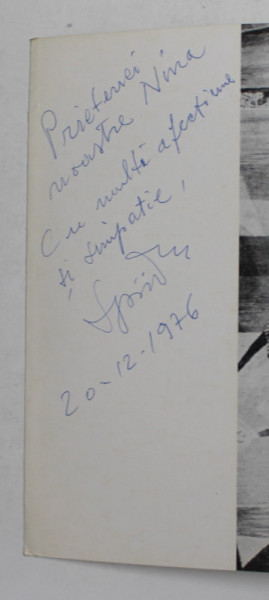 Prietenei
noastre Nina
Cu multă afecțiune
și simpatie,
20-12-1976